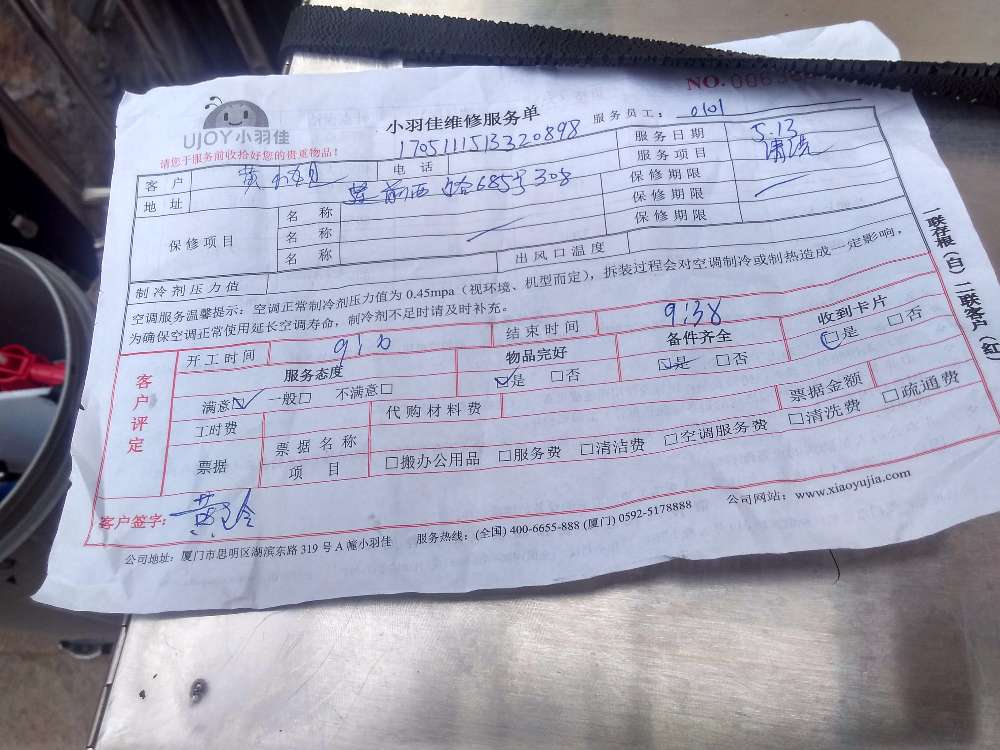 NO. 006
UJOY小羽佳
小羽佳维修服务单
服务员工: 0101
请您于服务前收拾好您的贵重物品!
1705111513320898
客户 黄 电话 服务日期 5.13
地址 685号308 服务项目 清洗
保修项目 名称 保修期限
名称 保修期限
名称 保修期限
制冷剂压力值 出风口温度
空调服务温馨提示: 空调正常制冷剂压力值为 0.45mpa (视环境、机型而定), 拆装过程会对空调制冷或制热造成一定影响,
为确保空调正常使用延长空调寿命, 制冷剂不足时请及时补充。
客户评定
开工时间 结束时间 9:38
服务态度 物品完好 备件齐全 收到卡片
满意☑ 一般□ 不满意□ ☑是 □否 ☑是 □否 □是 □否
工时费 代购材料费 票据金额
票据 票据名称
项目 □搬办公用品 □服务费 □清洁费 □空调服务费 □清洗费 □疏通费
客户签字: 黄
公司地址: 厦门市思明区湖滨东路 319 号 A 幢小羽佳 服务热线: (全国) 400-6655-888 (厦门) 0592-5178888 公司网站: www.xiaoyujia.com
一联存根(白) 二联客户(红)